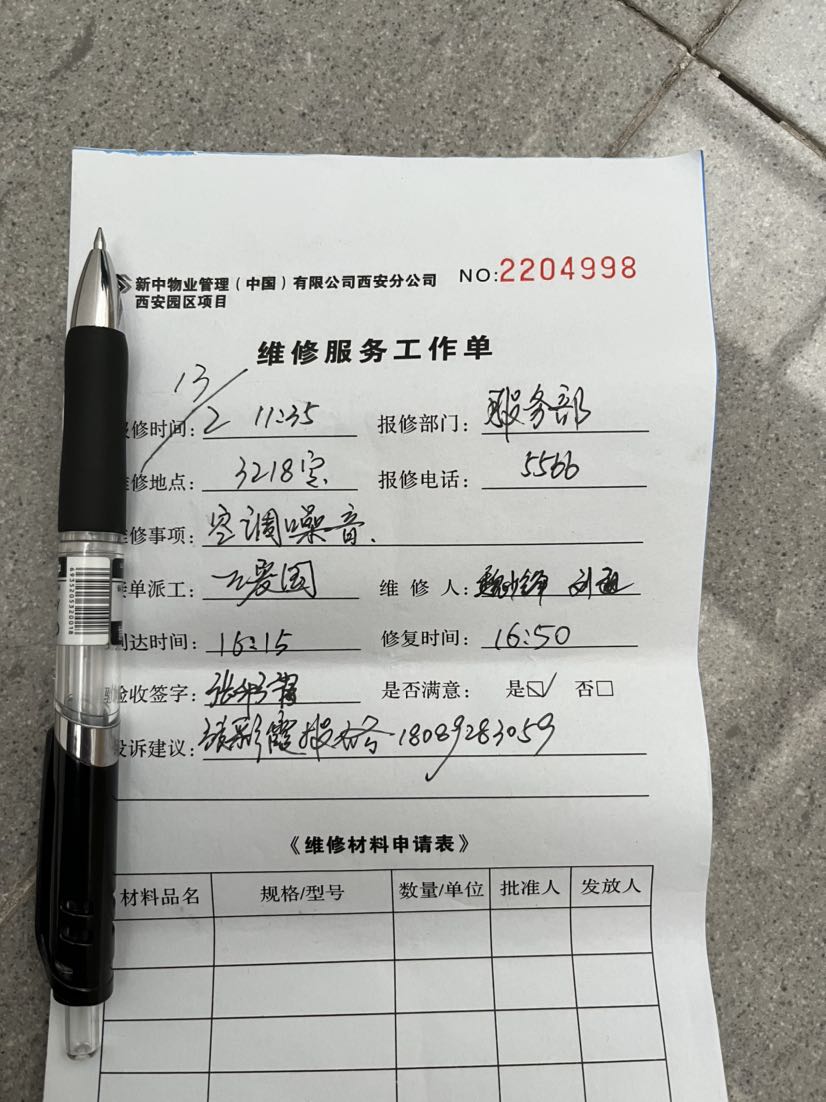 新中物业管理(中国)有限公司西安分公司 NO:2204998
西安园区项目
维修服务工作单
报修时间: 13/2 11:35 报修部门: 服务部
维修地点: 3218室 报修电话: 5566
维修事项: 空调噪音、
单派工: 爱国 维修人:
到达时间: 16:15 修复时间: 16:50
验收签字: 张 是否满意: 是☑ 否□
投诉建议: 彩霞 18089283059
《维修材料申请表》
材料品名 规格/型号 数量/单位 批准人 发放人
6935205320018